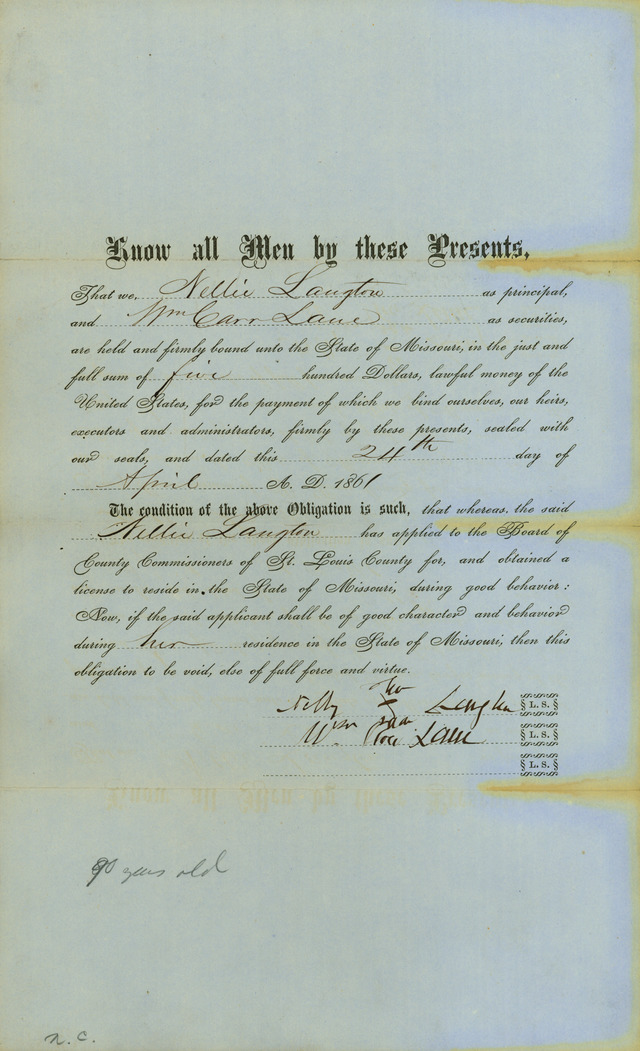 Know all Men by these Presents,
That we, Nellie Langton as principal,
and Wm Carr Lane as securities,
are held and firmly bound unto the State of Missouri, in the just and
full sum of five hundred Dollars, lawful money of the
United States, for the payment of which we bind ourselves, our heirs,
executors and administrators, firmly by these presents, sealed with
our seals, and dated this 24th day of
April A. D. 1861
The condition of the above Obligation is such, that whereas, the said
Nellie Langton has applied to the Board of
County Commissioners of St. Louis County for, and obtained a
license to reside in the State of Missouri, during good behavior:
Now, if the said applicant shall be of good character and behavior
during her residence in the State of Missouri, then this
obligation to be void, else of full force and virtue.
Nelly her X Langton L. S.
Wm Carr Lane L. S.
L. S.
90 years old
N. C.